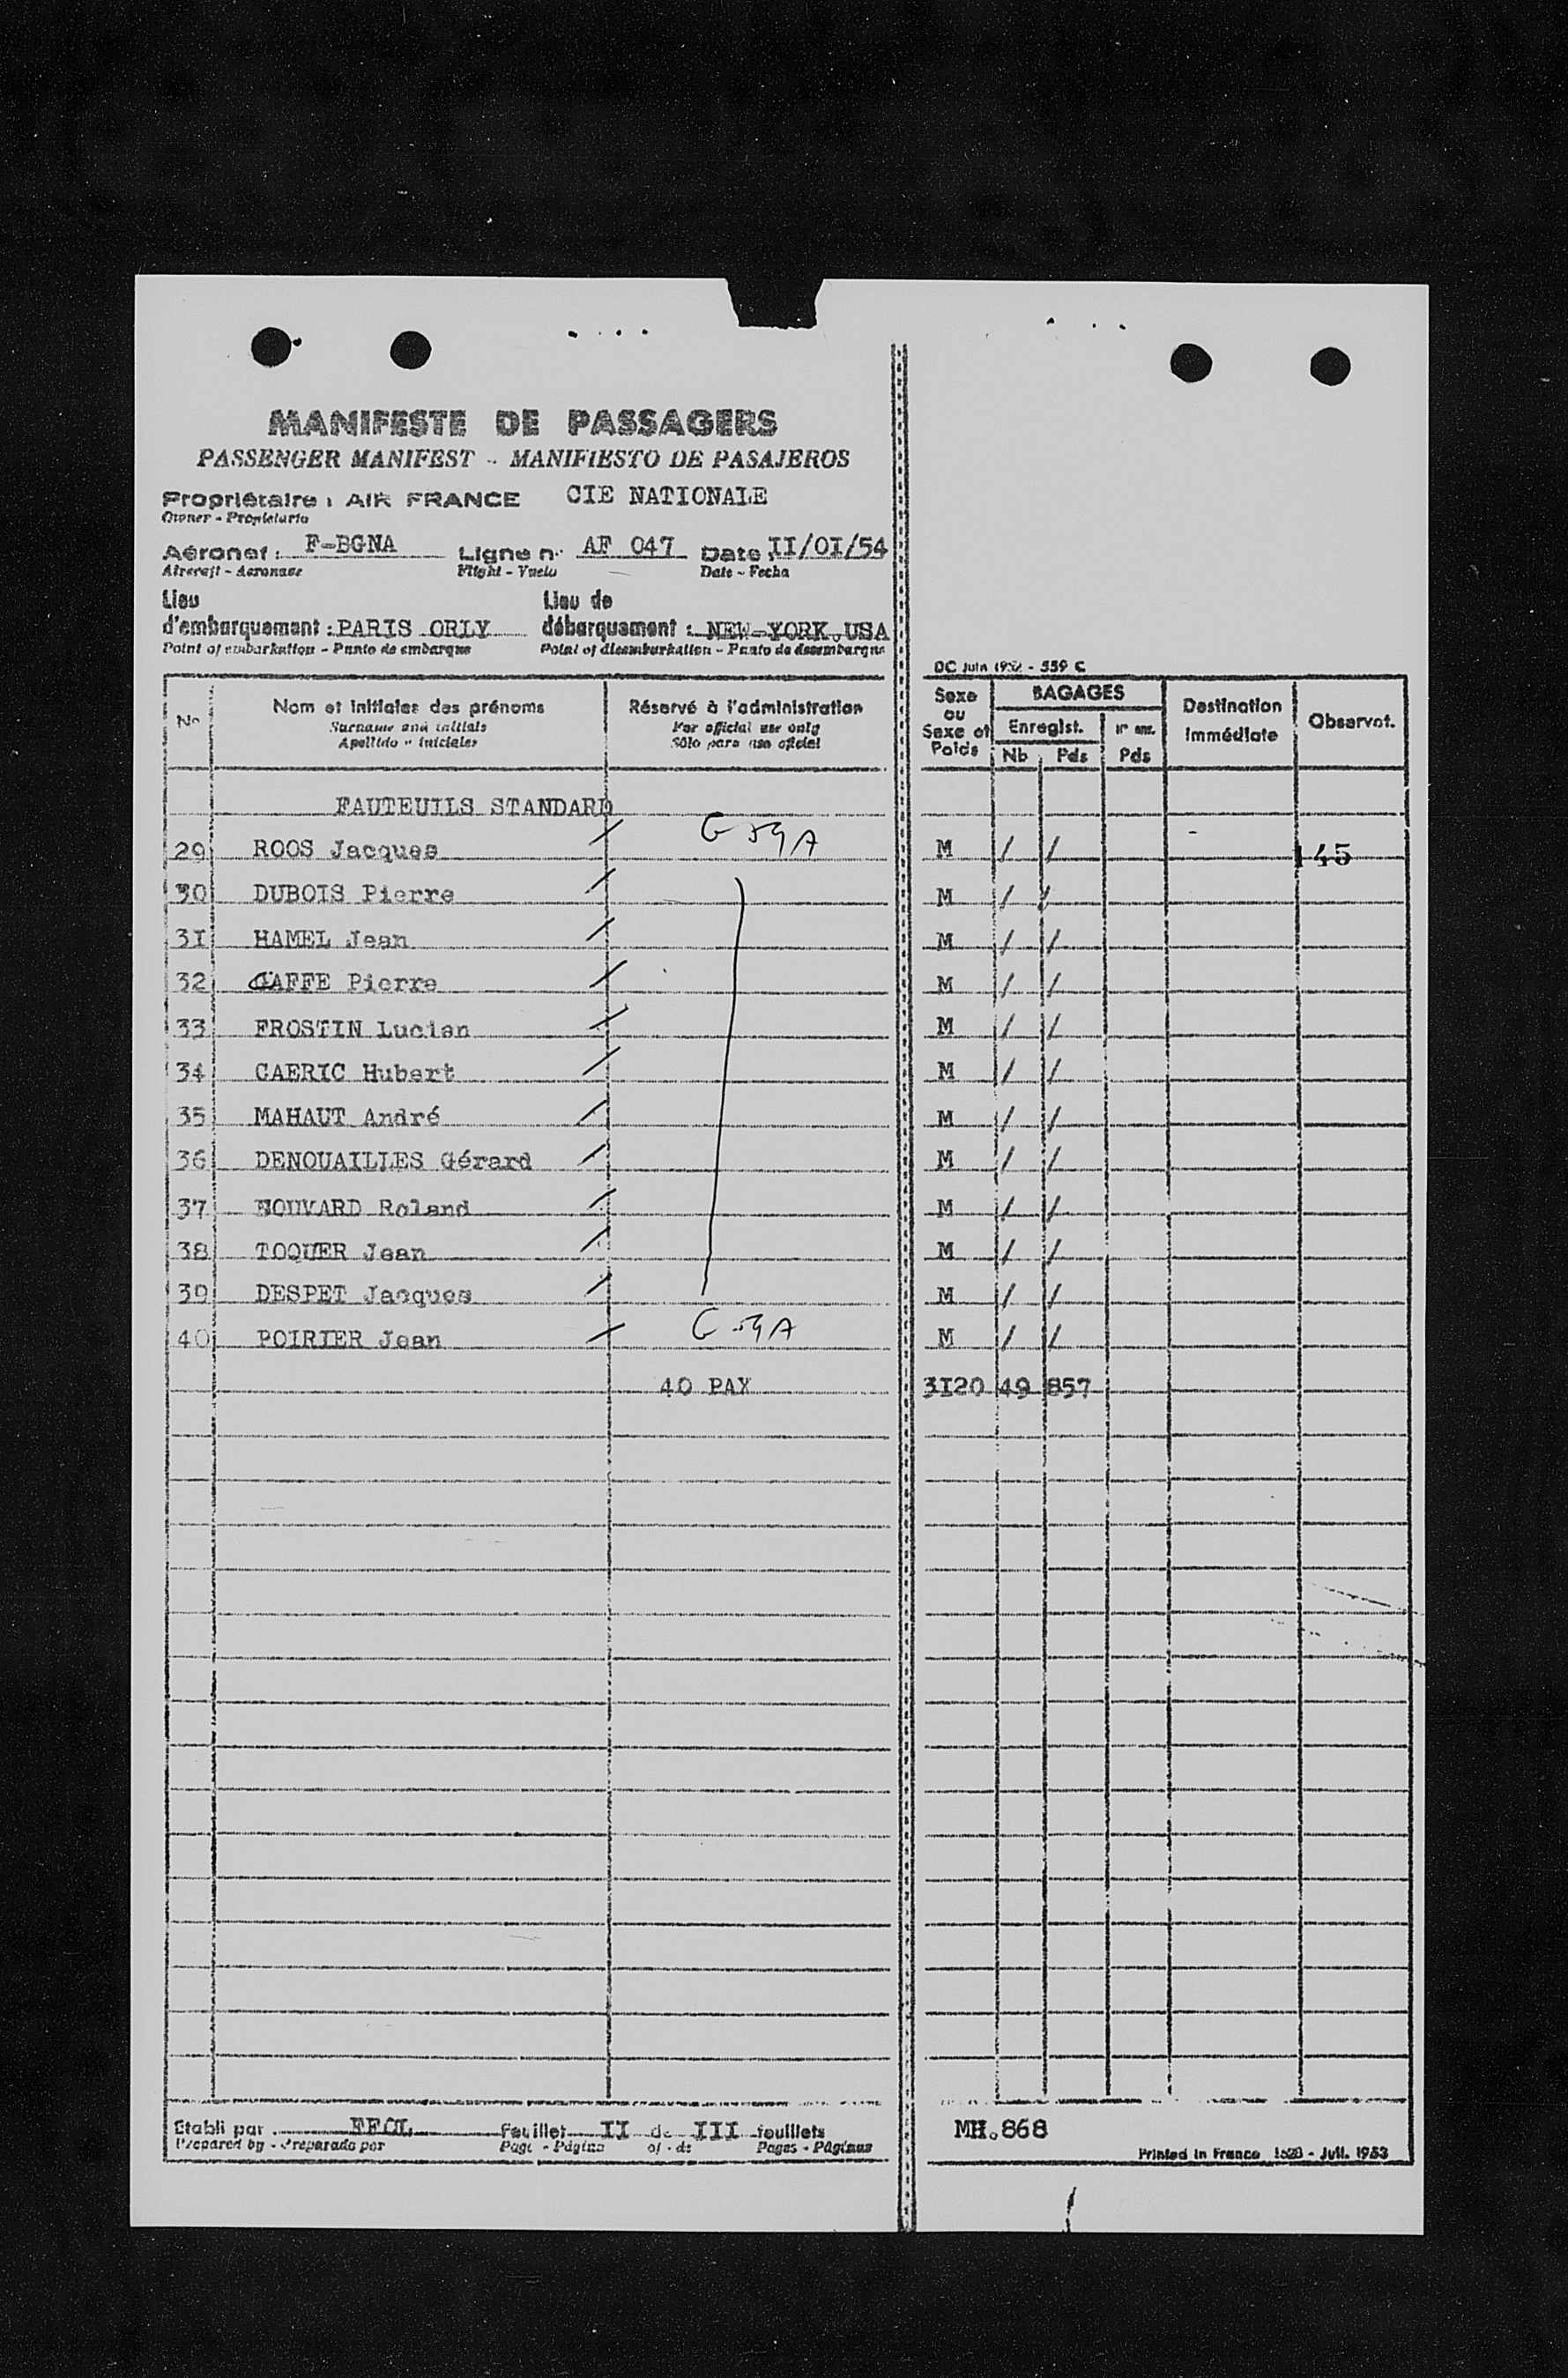 MANIFESTE DE PASSAGERS
PASSENGER MANIFEST - MANIFIESTO DE PASAJEROS
Propriétaire : AIR FRANCE CIE NATIONALE
Owner - Propietario
Aéronef : F-BGNA Ligne n° AF 047 Date II/OI/54
Aircraft - Aeronave Flight - Vuelo Date - Fecha
Lieu d'embarquement : PARIS ORLY Lieu de débarquement : NEW-YORK.USA
Point of embarkation - Punto de embarque Point of disembarkation - Punto de desembarque
DC Juin 1952 - 559 C
N° Nom et initiales des prénoms Réservé à l'administration Sexe ou Sexe et Poids BAGAGES Destination immédiate Observat.
Surname and initials For official use only Enregist. Nb Pds Pds
Apellido e iniciales Sólo para uso oficial
FAUTEUILS STANDARD
29 ROOS Jacques / G-59A M / / 145
30 DUBOIS Pierre / M / /
3I HAMEL Jean / M / /
32 GAFFE Pierre / M / /
33 FROSTIN Lucien / M / /
34 CAERIC Hubert / M / /
35 MAHAUT André / M / /
36 DENOUAILLES Gérard / M / /
37 Roland / M / /
38 TOQUER Jean / M / /
39 DESPET Jacques / M / /
40 POIRIER Jean / G-59A M / /
40 PAX 3I20 49 857
Etabli par Feuillet II de III feuillets MH.868
Prepared by - Preparado por Page - Página of - de Pages - Páginas
Printed in France - Juil. 1953